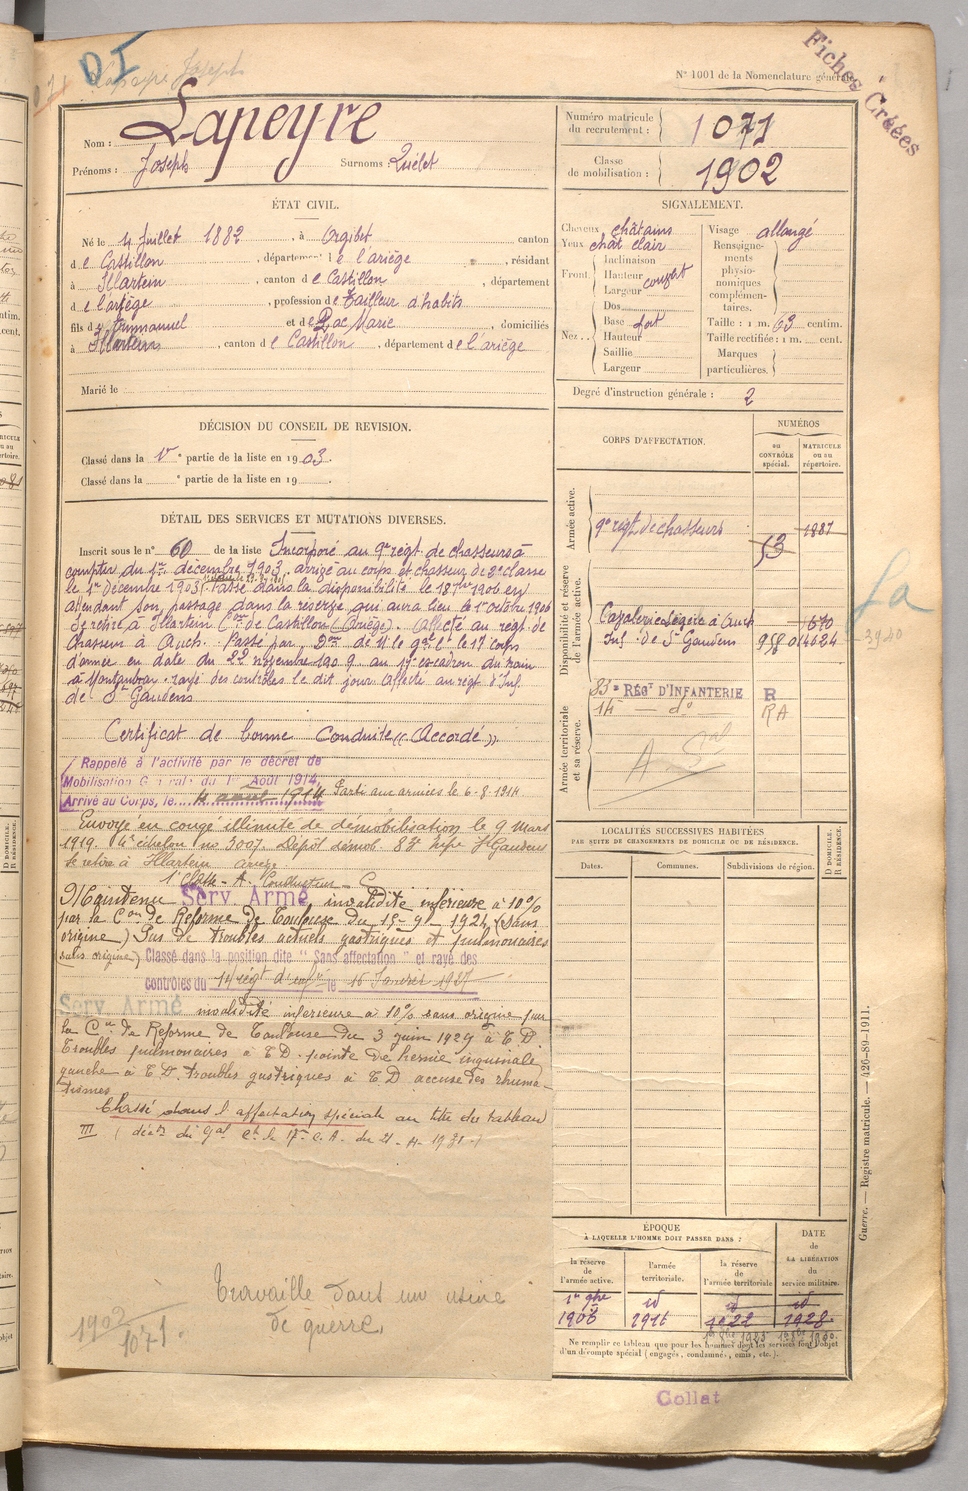 DI
Lapeyre Joseph
N° 1001 de la Nomenclature générale.
Fiches Créées
Nom : Lapeyre
Prénoms : Joseph Surnoms : Quélet
Numéro matricule du recrutement : 1071
Classe de mobilisation : 1902
ÉTAT CIVIL.
Né le 4 Juillet 1882, à Orgibet, canton
de Castillon, département de l'ariège, résidant
à Illartein, canton de Castillon, département
de l'ariège, profession de Tailleur d'habits
fils d'Emmanuel et de Pac Marie, domiciliés
à Illartein, canton de Castillon, département de l'ariège
Marié le
SIGNALEMENT.
Cheveux châtains
Yeux chât clair
Front. Inclinaison
Hauteur couvert
Largeur
Nez .. Dos
Base fort
Hauteur
Saillie
Largeur
Visage allongé
Renseignements physionomiques complémentaires.
Taille : 1 m. 63 centim.
Taille rectifiée : 1 m. cent.
Marques particulières.
Degré d'instruction générale : 2
DÉCISION DU CONSEIL DE REVISION.
Classé dans la V e partie de la liste en 1903.
Classé dans la e partie de la liste en 19 .
CORPS D'AFFECTATION.
NUMÉROS
au CONTRÔLE spécial.
MATRICULE ou au répertoire.
Armée active.
9e régt de chasseurs 53 1887
Disponibilité et réserve de l'armée active.
Cavalerie Légère à Auch 670
Inf. de St Gaudens 958 04024
Armée territoriale et sa réserve.
83e RÉGT D'INFANTERIE R
14e — do RA
DÉTAIL DES SERVICES ET MUTATIONS DIVERSES.
Inscrit sous le n° 60 de la liste Incorporé au 9e régt de chasseurs à
compter du 1er décembre 1903, arrivé au corps et chasseur de 2e classe
le 1er Décembre 1903. Passé dans la disponibilité le 18 1906 en
attendant son passage dans la réserve qui aura lieu le 1er octobre 1906
Se retire à Illartein Con de Castillon (Ariège). Affecté au régt de
Chasseurs à Auch. Passé par Don de M. le Gal Ct le 17e corps
d'armée en date du 22 novembre 1909 au 17e escadron du train
à Montauban. rayé des contrôles le dit jour. Affecté au régt d'Inf.
de St Gaudens
Certificat de bonne Conduite « Accordé ».
Rappelé à l'activité par le décret de
Mobilisation Générale du 1er Août 1914,
Arrivé au Corps, le 4 août 1914 Parti aux armées le 6-8-1914
Envoyé en congé illimité de démobilisation le 9 Mars
1919. 4e échelon no 3007. Dépôt démob. 83e Infie St Gaudens
Se retire à Illartein Ariège
1e Classe - A - Conducteur - C
Maintenu Serv. Armé, invalidité inférieure à 10%
par la Con de Réforme de Toulouse du 15-9-1924 (Sans
origine) Pas de troubles actuels gastriques et pulmonaires
(sans origine) Classé dans la position dite "Sans affectation" et rayé des
contrôles du 14 régt d'infie le 16 Janvier 1927
Serv. Armé invalidité inférieure à 10% sans origine par
la Con de Réforme de Toulouse du 3 juin 1929 à T.D.
Troubles pulmonaires à T.D. pointe de hernie inguinale
gauche à T.D. troubles gastriques à T.D accuse des rhuma-
tismes
Classé dans l'affectation spéciale au titre du tableau
III (décon du Gal Ct le 17e C.A. du 21-4-1931)
Travaille dans une usine
de guerre.
1902
1071.
LOCALITÉS SUCCESSIVES HABITÉES
PAR SUITE DE CHANGEMENTS DE DOMICILE OU DE RÉSIDENCE.
Dates.
Communes.
Subdivisions de région.
D DOMICILE.
R RÉSIDENCE.
ÉPOQUE
À LAQUELLE L'HOMME DOIT PASSER DANS :
DATE de LA LIBÉRATION du service militaire.
la réserve de l'armée active.
l'armée territoriale.
la réserve de l'armée territoriale
1er 8bre 1906
id 1916
id 1922
id 1928
Ne remplir ce tableau que pour les hommes dont les services font l'objet
d'un décompte spécial (engagés, condamnés, omis, etc.).
Guerre. — Registre matricule. — 426-89-1911.
Collat